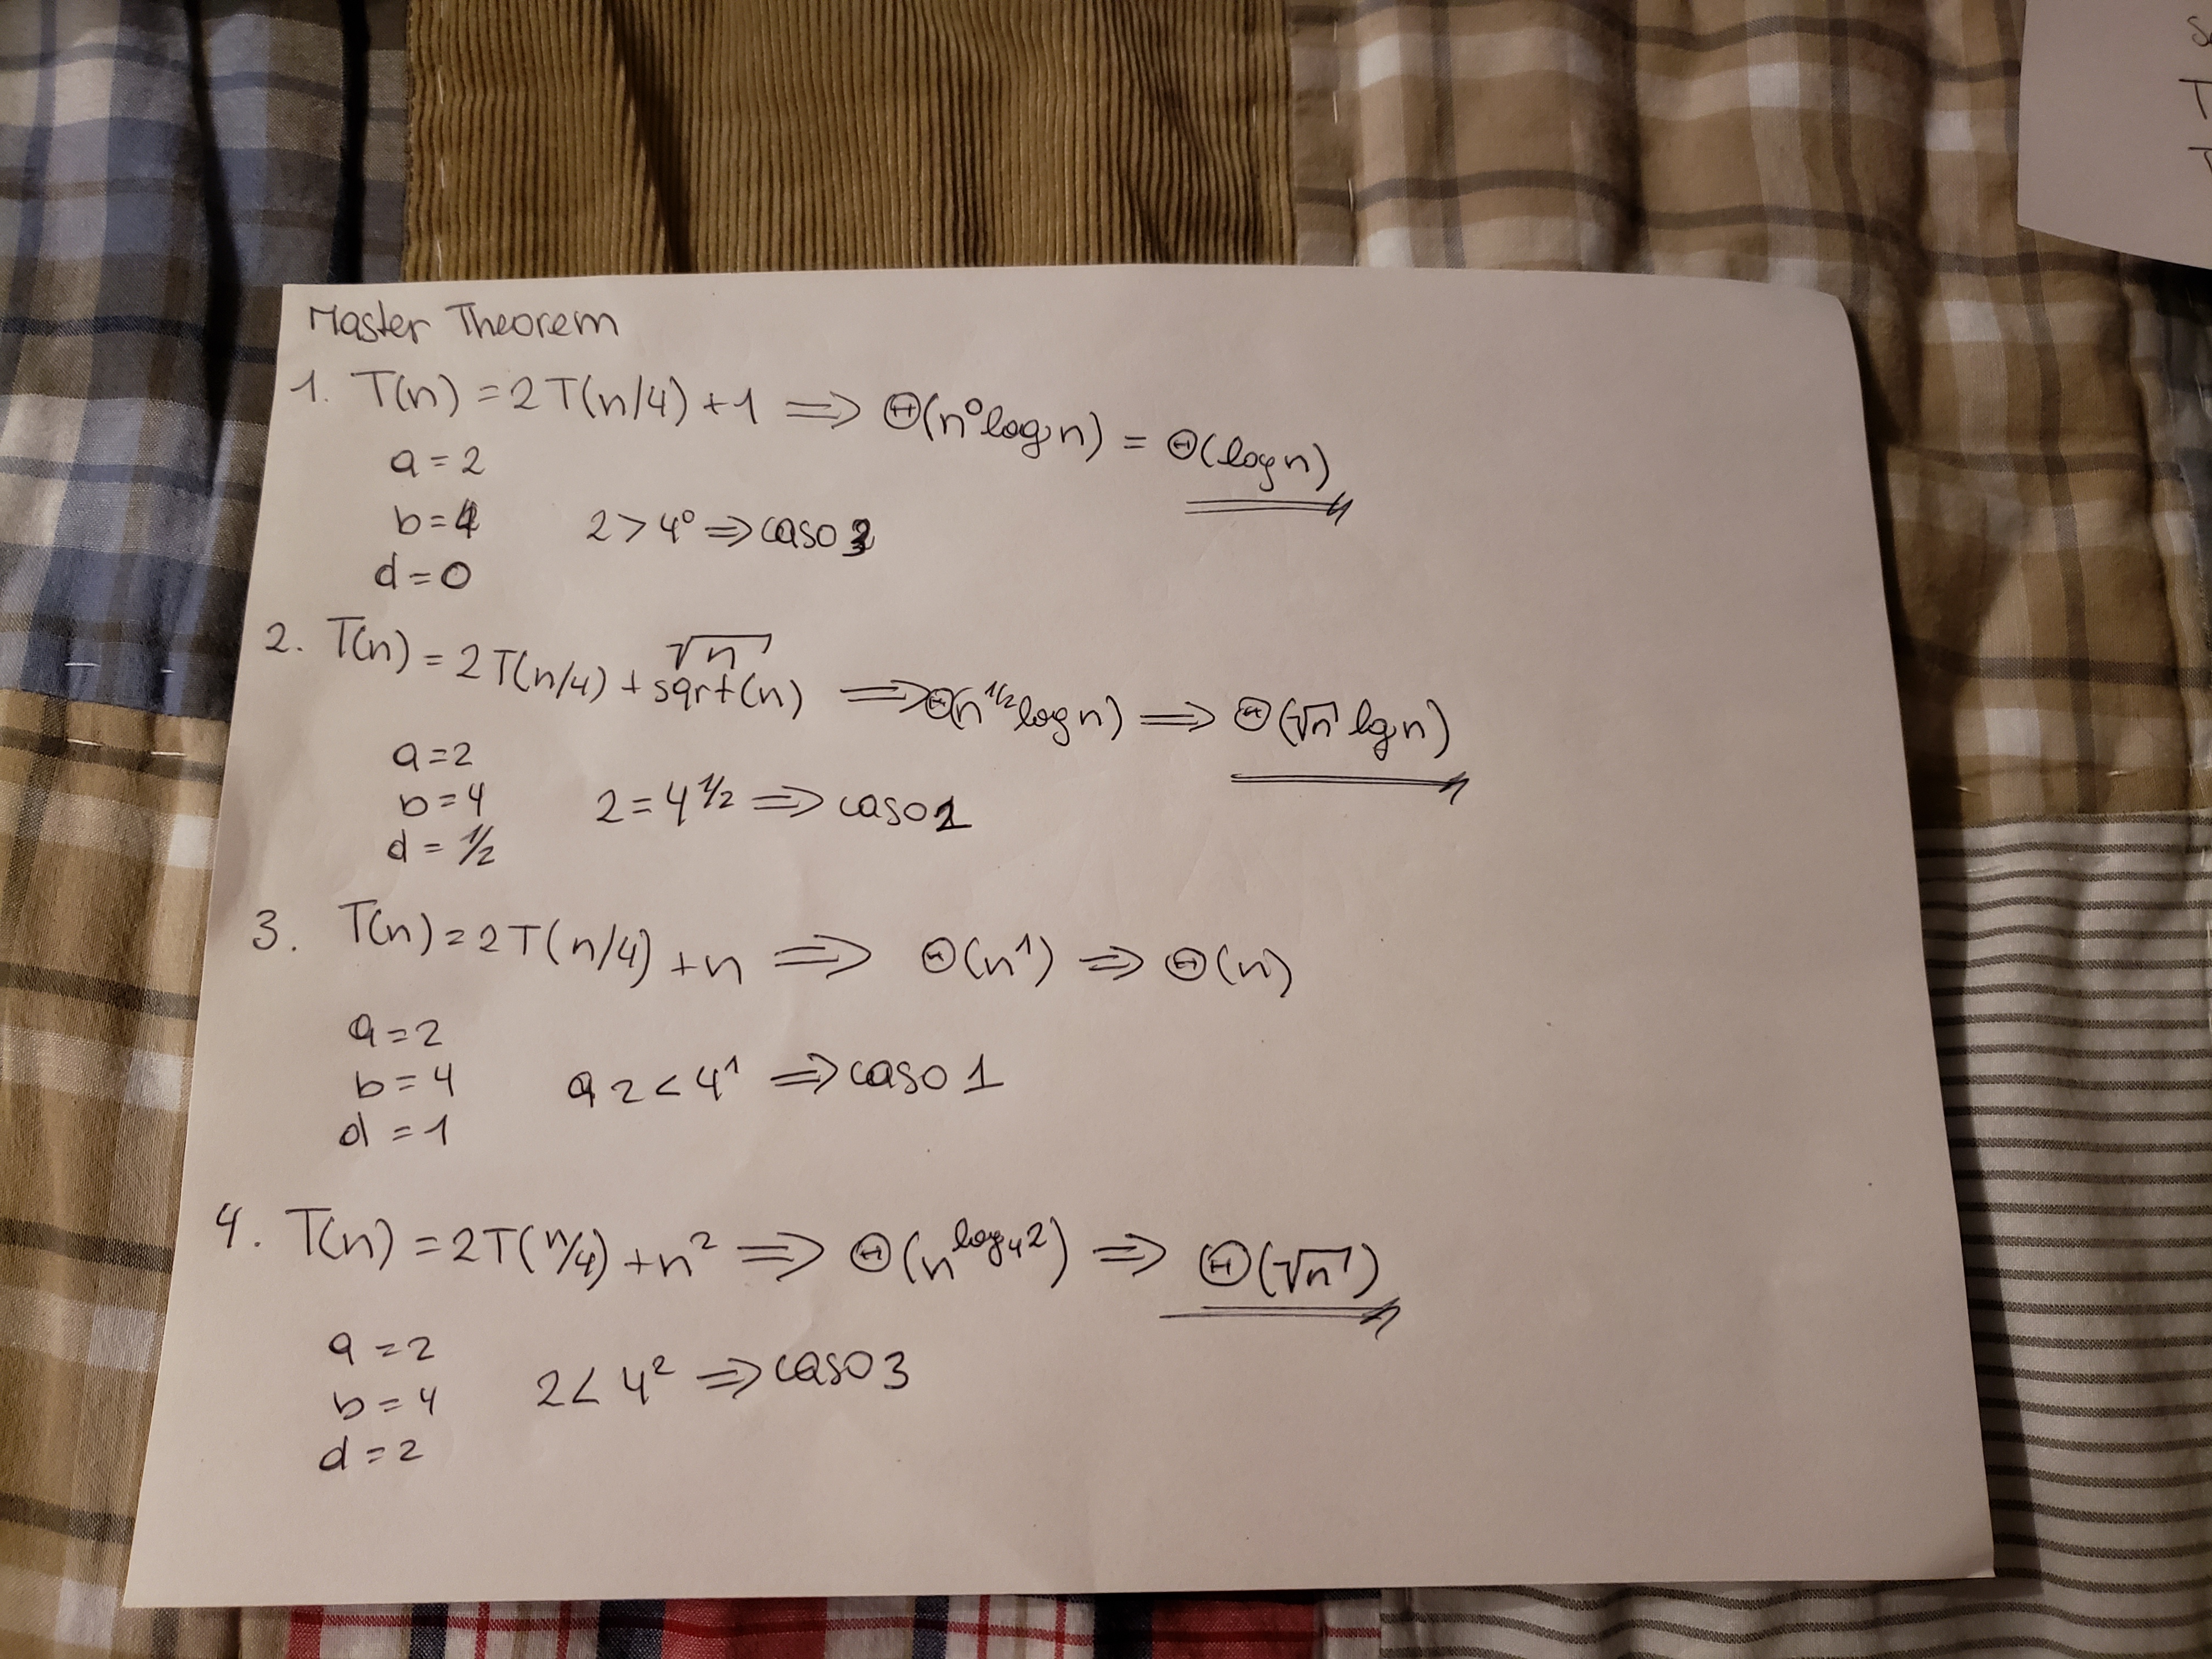 Master Theorem
1. T(n) = 2T(n/4) + 1 => Θ(n⁰ log n) = Θ(log n)
a = 2
b = 4 2 > 4⁰ => caso
d = 0
√n
2. T(n) = 2T(n/4) + sqrt(n) => Θ(n^1/2 log n) => Θ(√n lg n)
a = 2
b = 4 2 = 4^1/2 => caso
d = 1/2
3. T(n) = 2T(n/4) + n => Θ(n¹) => Θ(n)
a = 2
b = 4 a 2 < 4¹ => caso 1
d = 1
4. T(n) = 2T(n/4) + n² => Θ(n^log₄2) => Θ(√n)
a = 2
b = 4 2 < 4² => caso 3
d = 2
T
T